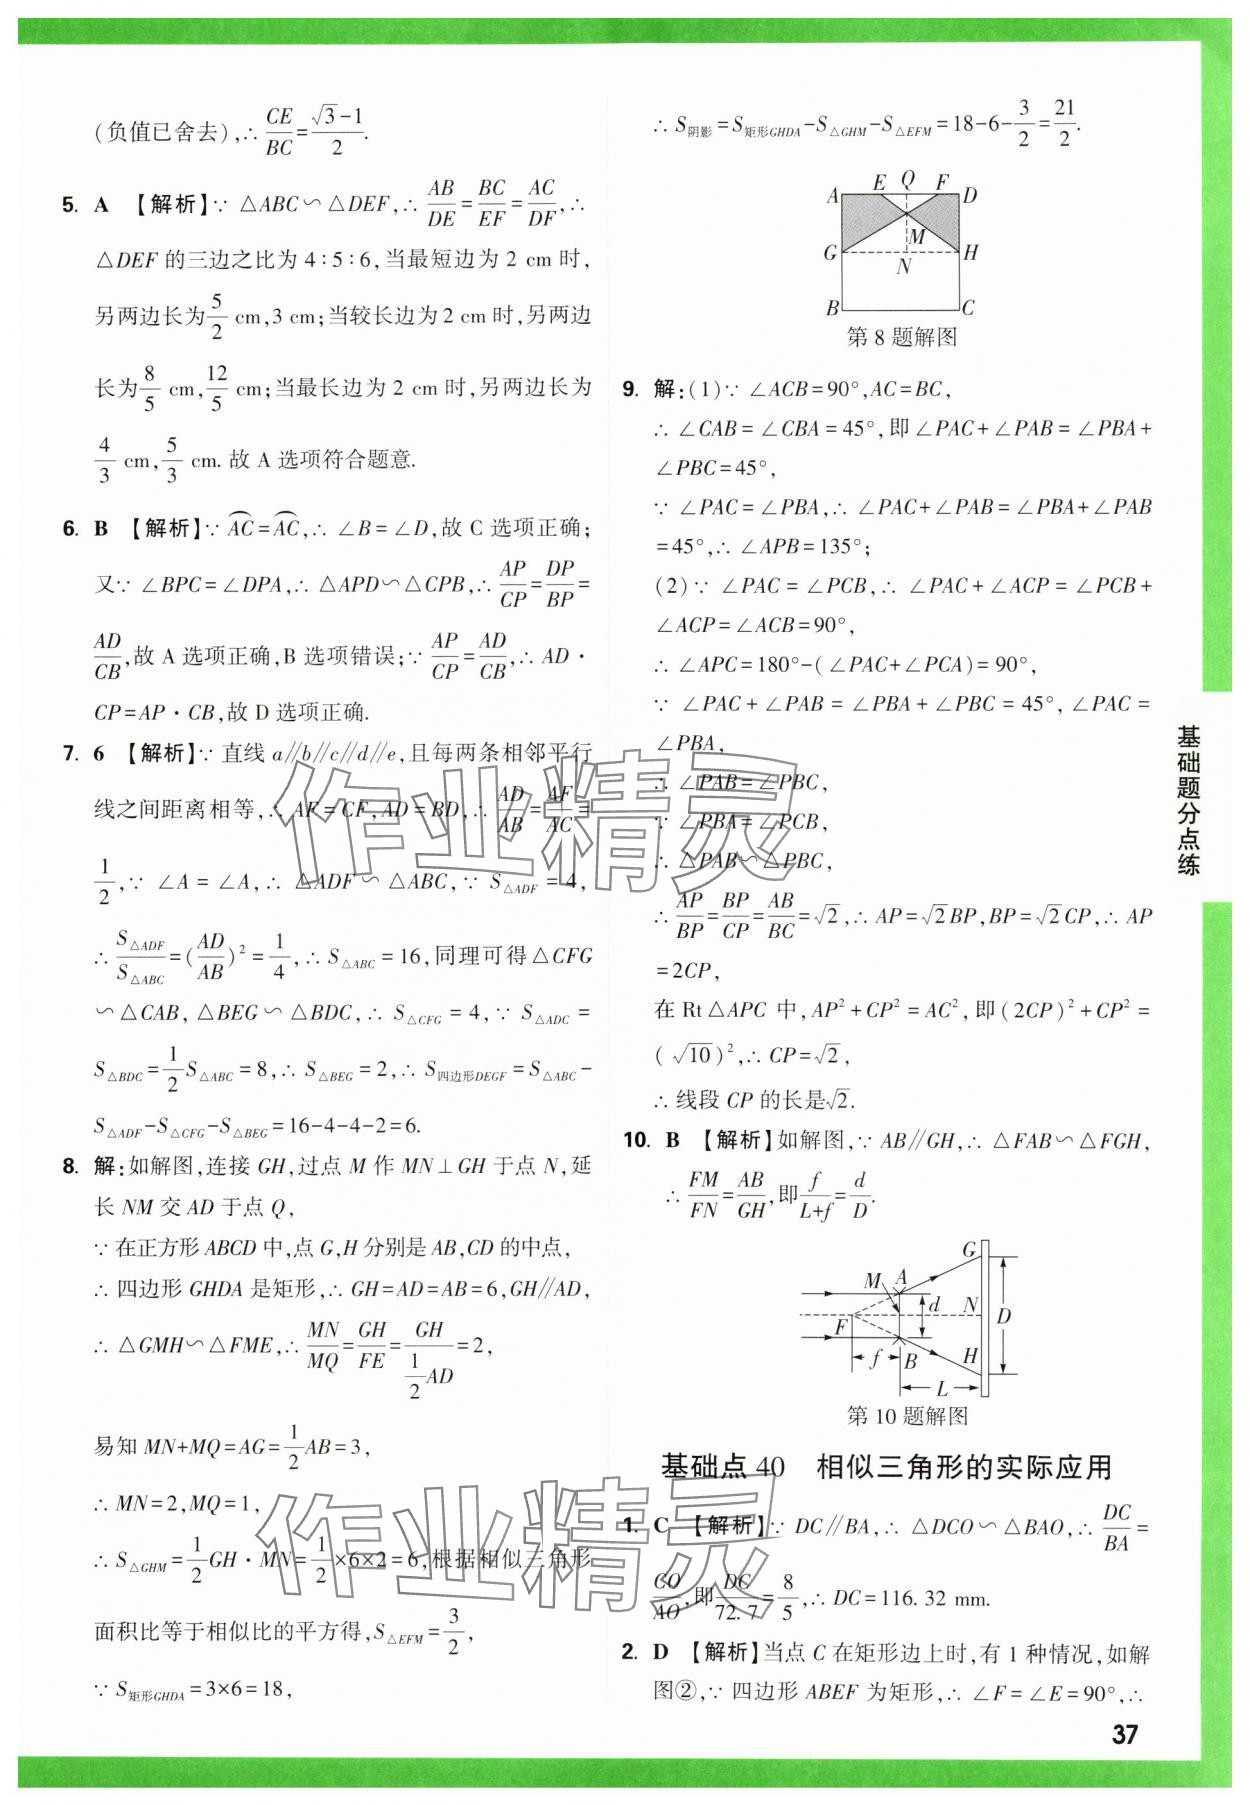 (负值已舍去),∴CE/BC=(√3-1)/2.
5. A 【解析】∵△ABC∽△DEF,∴AB/DE=BC/EF=AC/DF,∴
△DEF的三边之比为4∶5∶6,当最短边为2 cm时,
另两边长为5/2 cm,3 cm;当较长边为2 cm时,另两边
长为8/5 cm,12/5 cm;当最长边为2 cm时,另两边长为
4/3 cm,5/3 cm.故A选项符合题意.
6. B 【解析】∵⌒AC=⌒AC,∴∠B=∠D,故C选项正确;
又∵∠BPC=∠DPA,∴△APD∽△CPB,∴AP/CP=DP/BP=
AD/CB,故A选项正确,B选项错误;∵AP/CP=AD/CB,∴AD·
CP=AP·CB,故D选项正确.
7. 6 【解析】∵直线a∥b∥c∥d∥e,且每两条相邻平行
线之间距离相等,∴AF=CF,AD=BD,∴AD/AB=AF/AC=
1/2,∵∠A=∠A,∴△ADF∽△ABC,∵S△ADF=4,
∴S△ADF/S△ABC=(AD/AB)²=1/4,∴S△ABC=16,同理可得△CFG
∽△CAB,△BEG∽△BDC,∴S△CFG=4,∵S△ADC=
S△BDC=1/2S△ABC=8,∴S△BEG=2,∴S四边形DEGF=S△ABC-
S△ADF-S△CFG-S△BEG=16-4-4-2=6.
8. 解:如解图,连接GH,过点M作MN⊥GH于点N,延
长NM交AD于点Q,
∵在正方形ABCD中,点G,H分别是AB,CD的中点,
∴四边形GHDA是矩形,∴GH=AD=AB=6,GH∥AD,
∴△GMH∽△FME,∴MN/MQ=GH/FE=GH/(1/2AD)=2,
易知MN+MQ=AG=1/2AB=3,
∴MN=2,MQ=1,
∴S△GHM=1/2GH·MN=1/2×6×2=6,根据相似三角形
面积比等于相似比的平方得,S△EFM=3/2,
∵S矩形GHDA=3×6=18,
∴S阴影=S矩形GHDA-S△GHM-S△EFM=18-6-3/2=21/2.
A E Q F D
M
G N H
B C
第8题解图
9. 解:(1)∵∠ACB=90°,AC=BC,
∴∠CAB=∠CBA=45°,即∠PAC+∠PAB=∠PBA+
∠PBC=45°,
∵∠PAC=∠PBA,∴∠PAC+∠PAB=∠PBA+∠PAB
=45°,∴∠APB=135°;
(2)∵∠PAC=∠PCB,∴∠PAC+∠ACP=∠PCB+
∠ACP=∠ACB=90°,
∴∠APC=180°-(∠PAC+∠PCA)=90°,
∵∠PAC+∠PAB=∠PBA+∠PBC=45°,∠PAC=
∠PBA,
∴∠PAB=∠PBC,
∵∠PBA=∠PCB,
∴△PAB∽△PBC,
∴AP/BP=BP/CP=AB/BC=√2,∴AP=√2BP,BP=√2CP,∴AP
=2CP,
在Rt△APC中,AP²+CP²=AC²,即(2CP)²+CP²=
(√10)²,∴CP=√2,
∴线段CP的长是√2.
10. B 【解析】如解图,∵AB∥GH,∴△FAB∽△FGH,
∴FM/FN=AB/GH,即f/(L+f)=d/D.
G
M A
F d N D
f B H
L
第10题解图
基础点40 相似三角形的实际应用
1. C 【解析】∵DC∥BA,∴△DCO∽△BAO,∴DC/BA=
CO/AO,即DC/72.7=8/5,∴DC=116.32 mm.
2. D 【解析】当点C在矩形边上时,有1种情况,如解
图②,∵四边形ABEF为矩形,∴∠F=∠E=90°,∴
基础题分点练
37
作业精灵
作业精灵